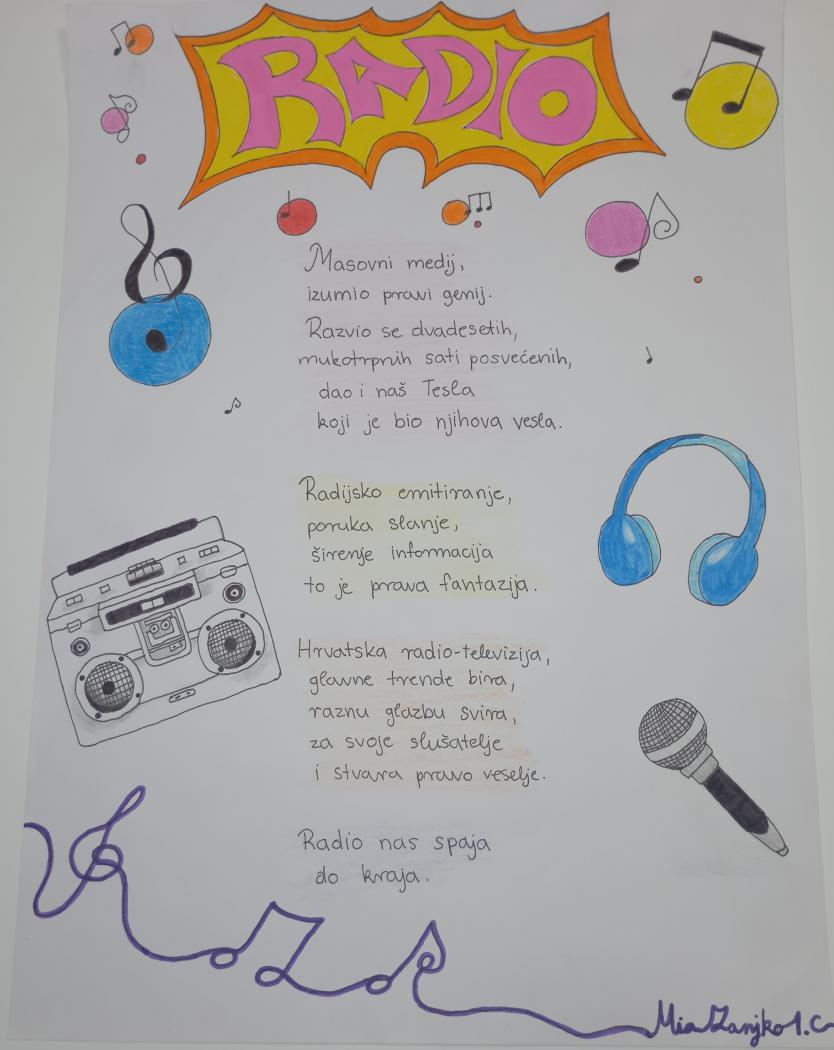 RADIO
Masovni medij,
izumio pravi genij.
Razvio se dvadesetih,
mukotrpnih sati posvećenih,
dao i naš Tesla
koji je bio njihova vesla.
Radijsko emitiranje,
poruka slanje,
širenje informacija
to je prava fantazija.
Hrvatska radio-televizija,
glavne trende bira,
raznu glazbu svira,
za svoje slušatelje
i stvara pravo veselje.
Radio nas spaja
do kraja.
Mia Zanjko 1.c